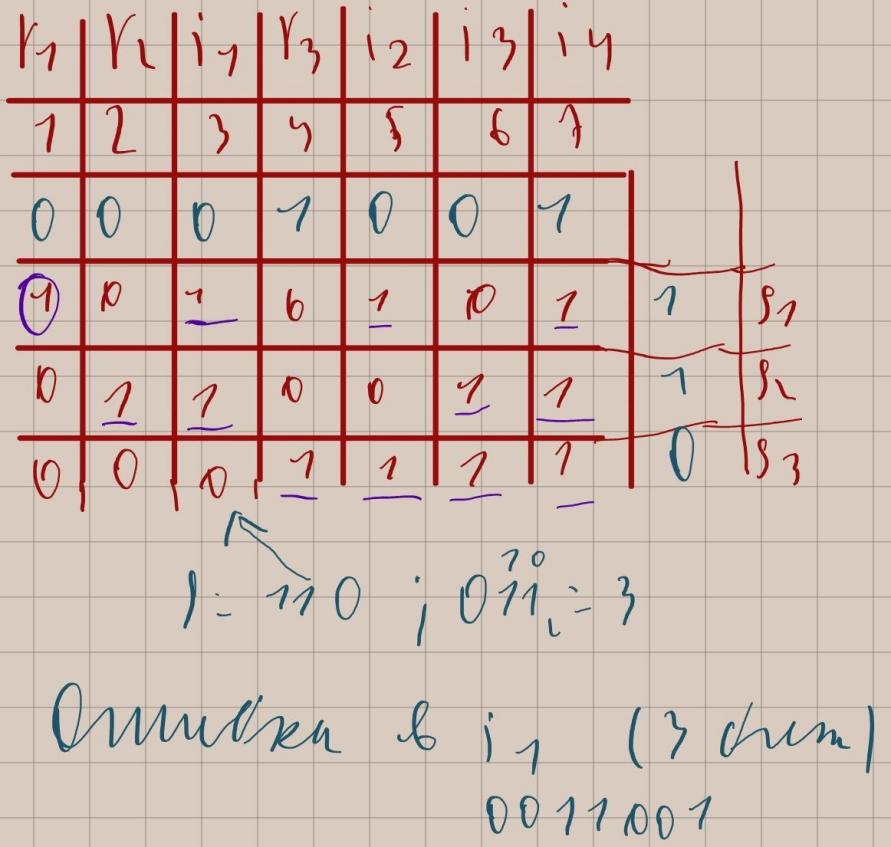 r1 r2 i1 r3 i2 i3 i4
1 2 3 4 5 6 7
0 0 0 1 0 0 1
1 0 1 0 1 0 1 1 S1
0 1 1 0 0 1 1 1 S2
0 0 0 1 1 1 1 0 S3
10
S = 110 ; 011₂ = 3
Ошибка в i1 (3 бит)
0011001